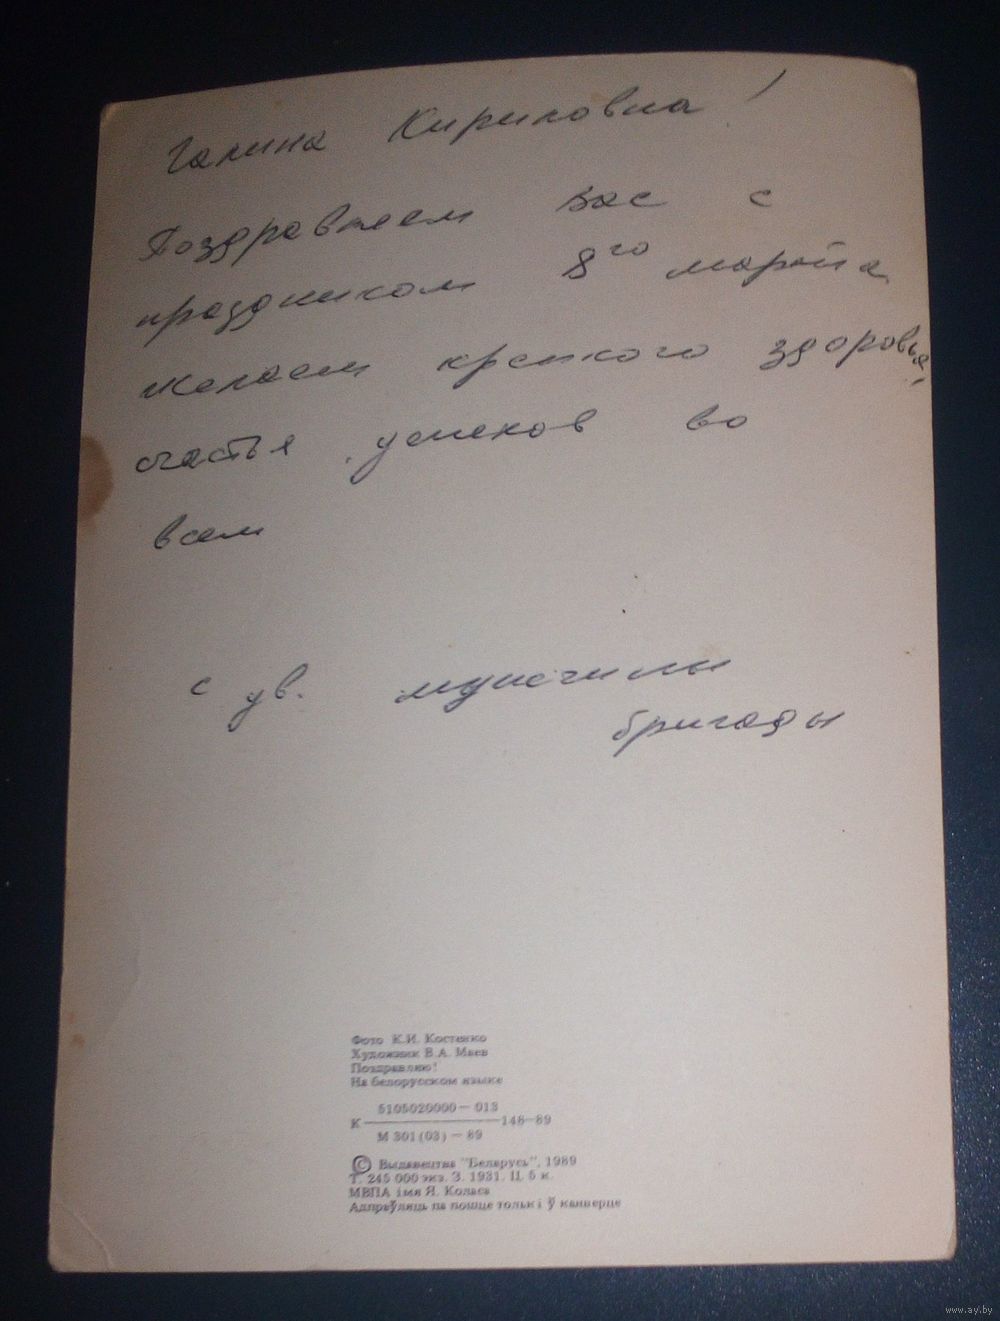 Галина Кириловна!
Поздравляем Вас с
праздником 8го марта
желаем крепкого здоровья,
счастья, успехов во
всем
с ув. мужчины
бригады
Фото К.И. Костенко
Художник В.А. Маев
Поздравляю!
На белорусском языке
5105020000—013
К 148—89
М 301(03)—89
© Выдавецтва "Беларусь", 1989
Т. 245 000 экз. З. 1931. Ц. 5 к.
МВПА імя Я. Коласа
Адпраўляць па пошце толькі ў канверце
www.ay.by